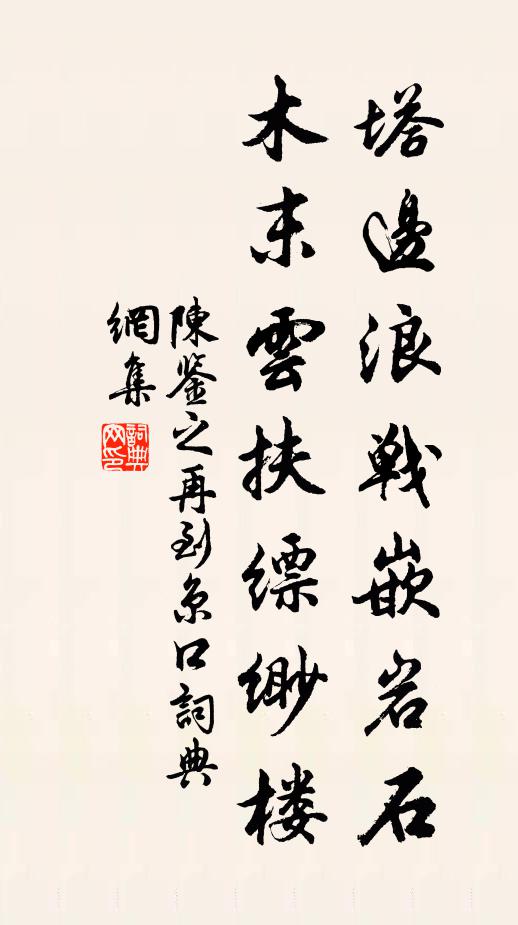 塔邊浪戰嵌岩石
木末雲扶縹緲楼
陳鉴之再到京口詞典
網集
詞典网印